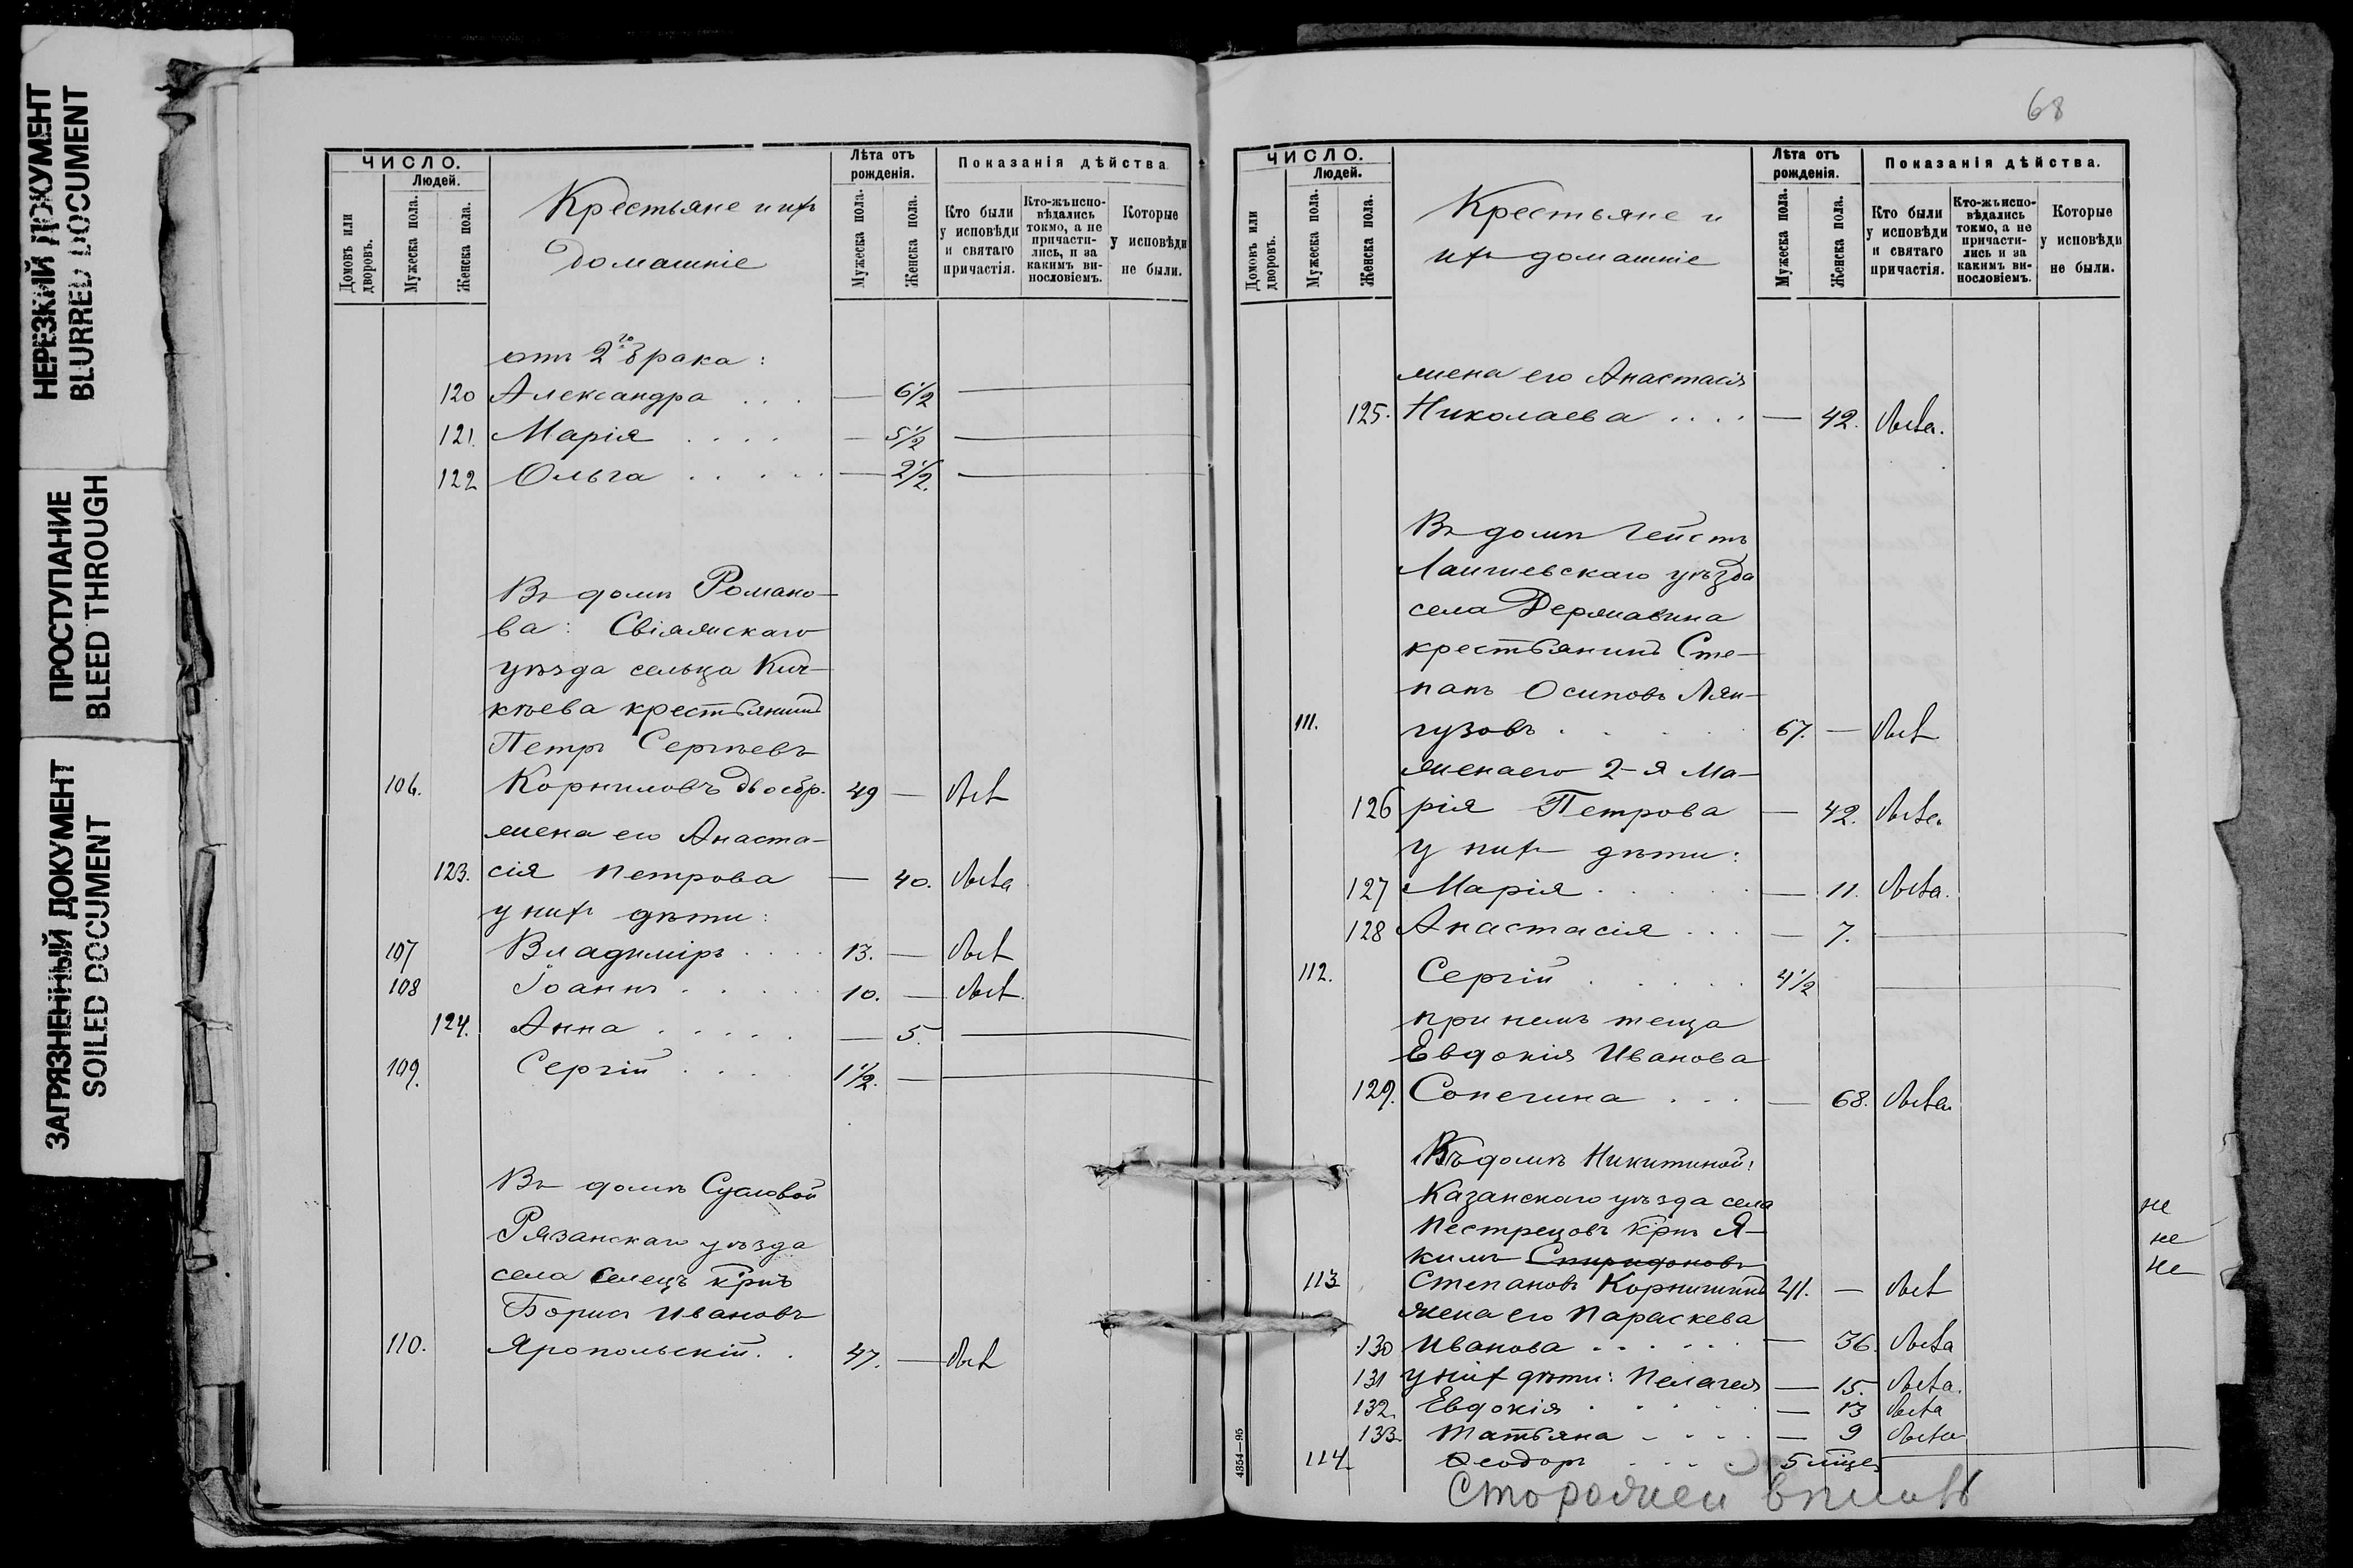 НЕРЕЗКИЙ ДОКУМЕНТ
BLURRED DOCUMENT
ПРОСТУПАНИЕ
BLEED THROUGH
ЗАГРЯЗНЕННЫЙ ДОКУМЕНТ
SOILED DOCUMENT
ЧИСЛО.
Людей.
Домовъ или дворовъ.
Мужеска пола.
Женска пола.
Крестьяне и ихъ
домашніе
Лѣта отъ рожденія.
Мужеска пола.
Женска пола.
Показанія дѣйства
Кто были у исповѣди и святаго причастія.
Кто-жъ испо-вѣдались токмо, а не причасти-лись, и за какимъ ви-нословіемъ.
Которые у исповѣди не были.
отъ 2го брака:
120 Александра . . . — 6½ —
121. Марія . . . . — 5½ —
122 Ольга . . . . . — 2½. —
Въ домѣ Романо-
ва: Свіяжскаго
уѣзда сельца Кич-
кѣева крестьянинъ
Петръ Сергѣевъ
106. Корниловъ 49 — былъ
жена его Анаста-
123. сія Петрова — 40. была
у нихъ дѣти:
107 Владиміръ . . . . 13. — былъ
108 Іоаннъ . . . . . 10. — былъ.
124. Анна . . . . — 5. —
109. Сергій . . . . 1½. — —
Въ домѣ
Рязанскаго уѣзда
села Селецъ крнъ
Борисъ Ивановъ
110. Яропольскій . . 47. — былъ
68
ЧИСЛО.
Людей.
Домовъ или дворовъ.
Мужеска пола.
Женска пола.
Крестьяне и
ихъ домашніе
Лѣта отъ рожденія.
Мужеска пола.
Женска пола.
Показанія дѣйства.
Кто были у исповѣди и святаго причастія.
Кто-жъ испо-вѣдались токмо, а не причасти-лись и за какимъ ви-нословіемъ.
Которые у исповѣди не были.
жена его Анастасія
125. Николаева . . . . — 42. была.
Въ домѣ Гейстъ
Лаишевскаго уѣзда
села Державина
крестьянинъ Сте-
панъ Осиповъ Лян-
111. гузовъ . . . . . 67. — былъ
жена его 2-я Ма-
126 рія Петрова — 42. была
у нихъ дѣти:
127 Марія . . . . . — 11. была.
128 Анастасія . . . — 7. —
112. Сергій . . . . . 4½ —
при немъ теща
Евдокія Иванова
129. Сопегина . . . — 68. была
Въ домѣ Никитиной:
Казанскаго уѣзда села
Пестрецовъ крнъ Я-
кимъ Спиридоновъ
113 Степановъ Корнишинъ 41. — былъ
жена его Параскева
130 Иванова . . . . . . — 36. была
131 у нихъ дѣти: Пелагея — 15. была.
132. Евдокія . . . . . — 13 была
133. Татьяна . . . . — 9 была
114. Ѳеодоръ . . . . 5 мцев —
не
не
не
4354—95